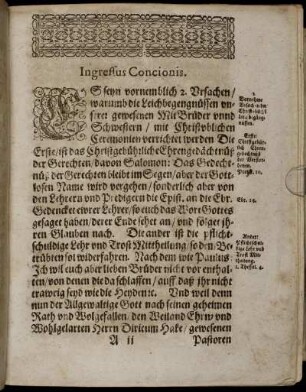 Ingressus Concionis.
ES seyn vornemblich 2. Ursachen/
warumb die Leichbegengnüssen un-
serer gewesenen MitBrüder vnnd
Schwestern / mit Christüblichen
Ceremonien verrichtet werden Die
Erste/ ist das Christgebührliche Ehrengedächtnüß
der Gerechten/ davon Salomon: Das Gedecht-
nüß der Gerechten bleibt im Segen/ aber der Gott-
losen Name wird vergehen/ sonderlich aber von
den Lehrern und Predigern die Epist. an die Ebr.
Gedencket ewrer Lehrer/ so euch das Wort Gottes
gesaget haben/ derer Ende sehet an/ und folget ih-
ren Glauben nach. Die ander ist die pflicht-
schuldige Lehr und Trost Mittheilung/ so den Be-
trübten sol widerfahren. Nach dem wie Paulus:
Ich wil euch aber lieben Brüder nicht vor enthal-
ten/ von denen die da schlaffen/ auff daß ihr nicht
trawrig seyd wie die Heyden ꝛc. Und weil denn
nun der Allgewaltige Gott nach seinen geheimen
Rath und Wolgefallen/ den Weiland Ehrw/ und
Wohlgelarten Herrn Diricum Hake/ gewesenen
A ii Pastoren
2.
Vornehme
Erste/
Prov. 10.
Ebr. 13.
Ander/
1. Thess. 4.